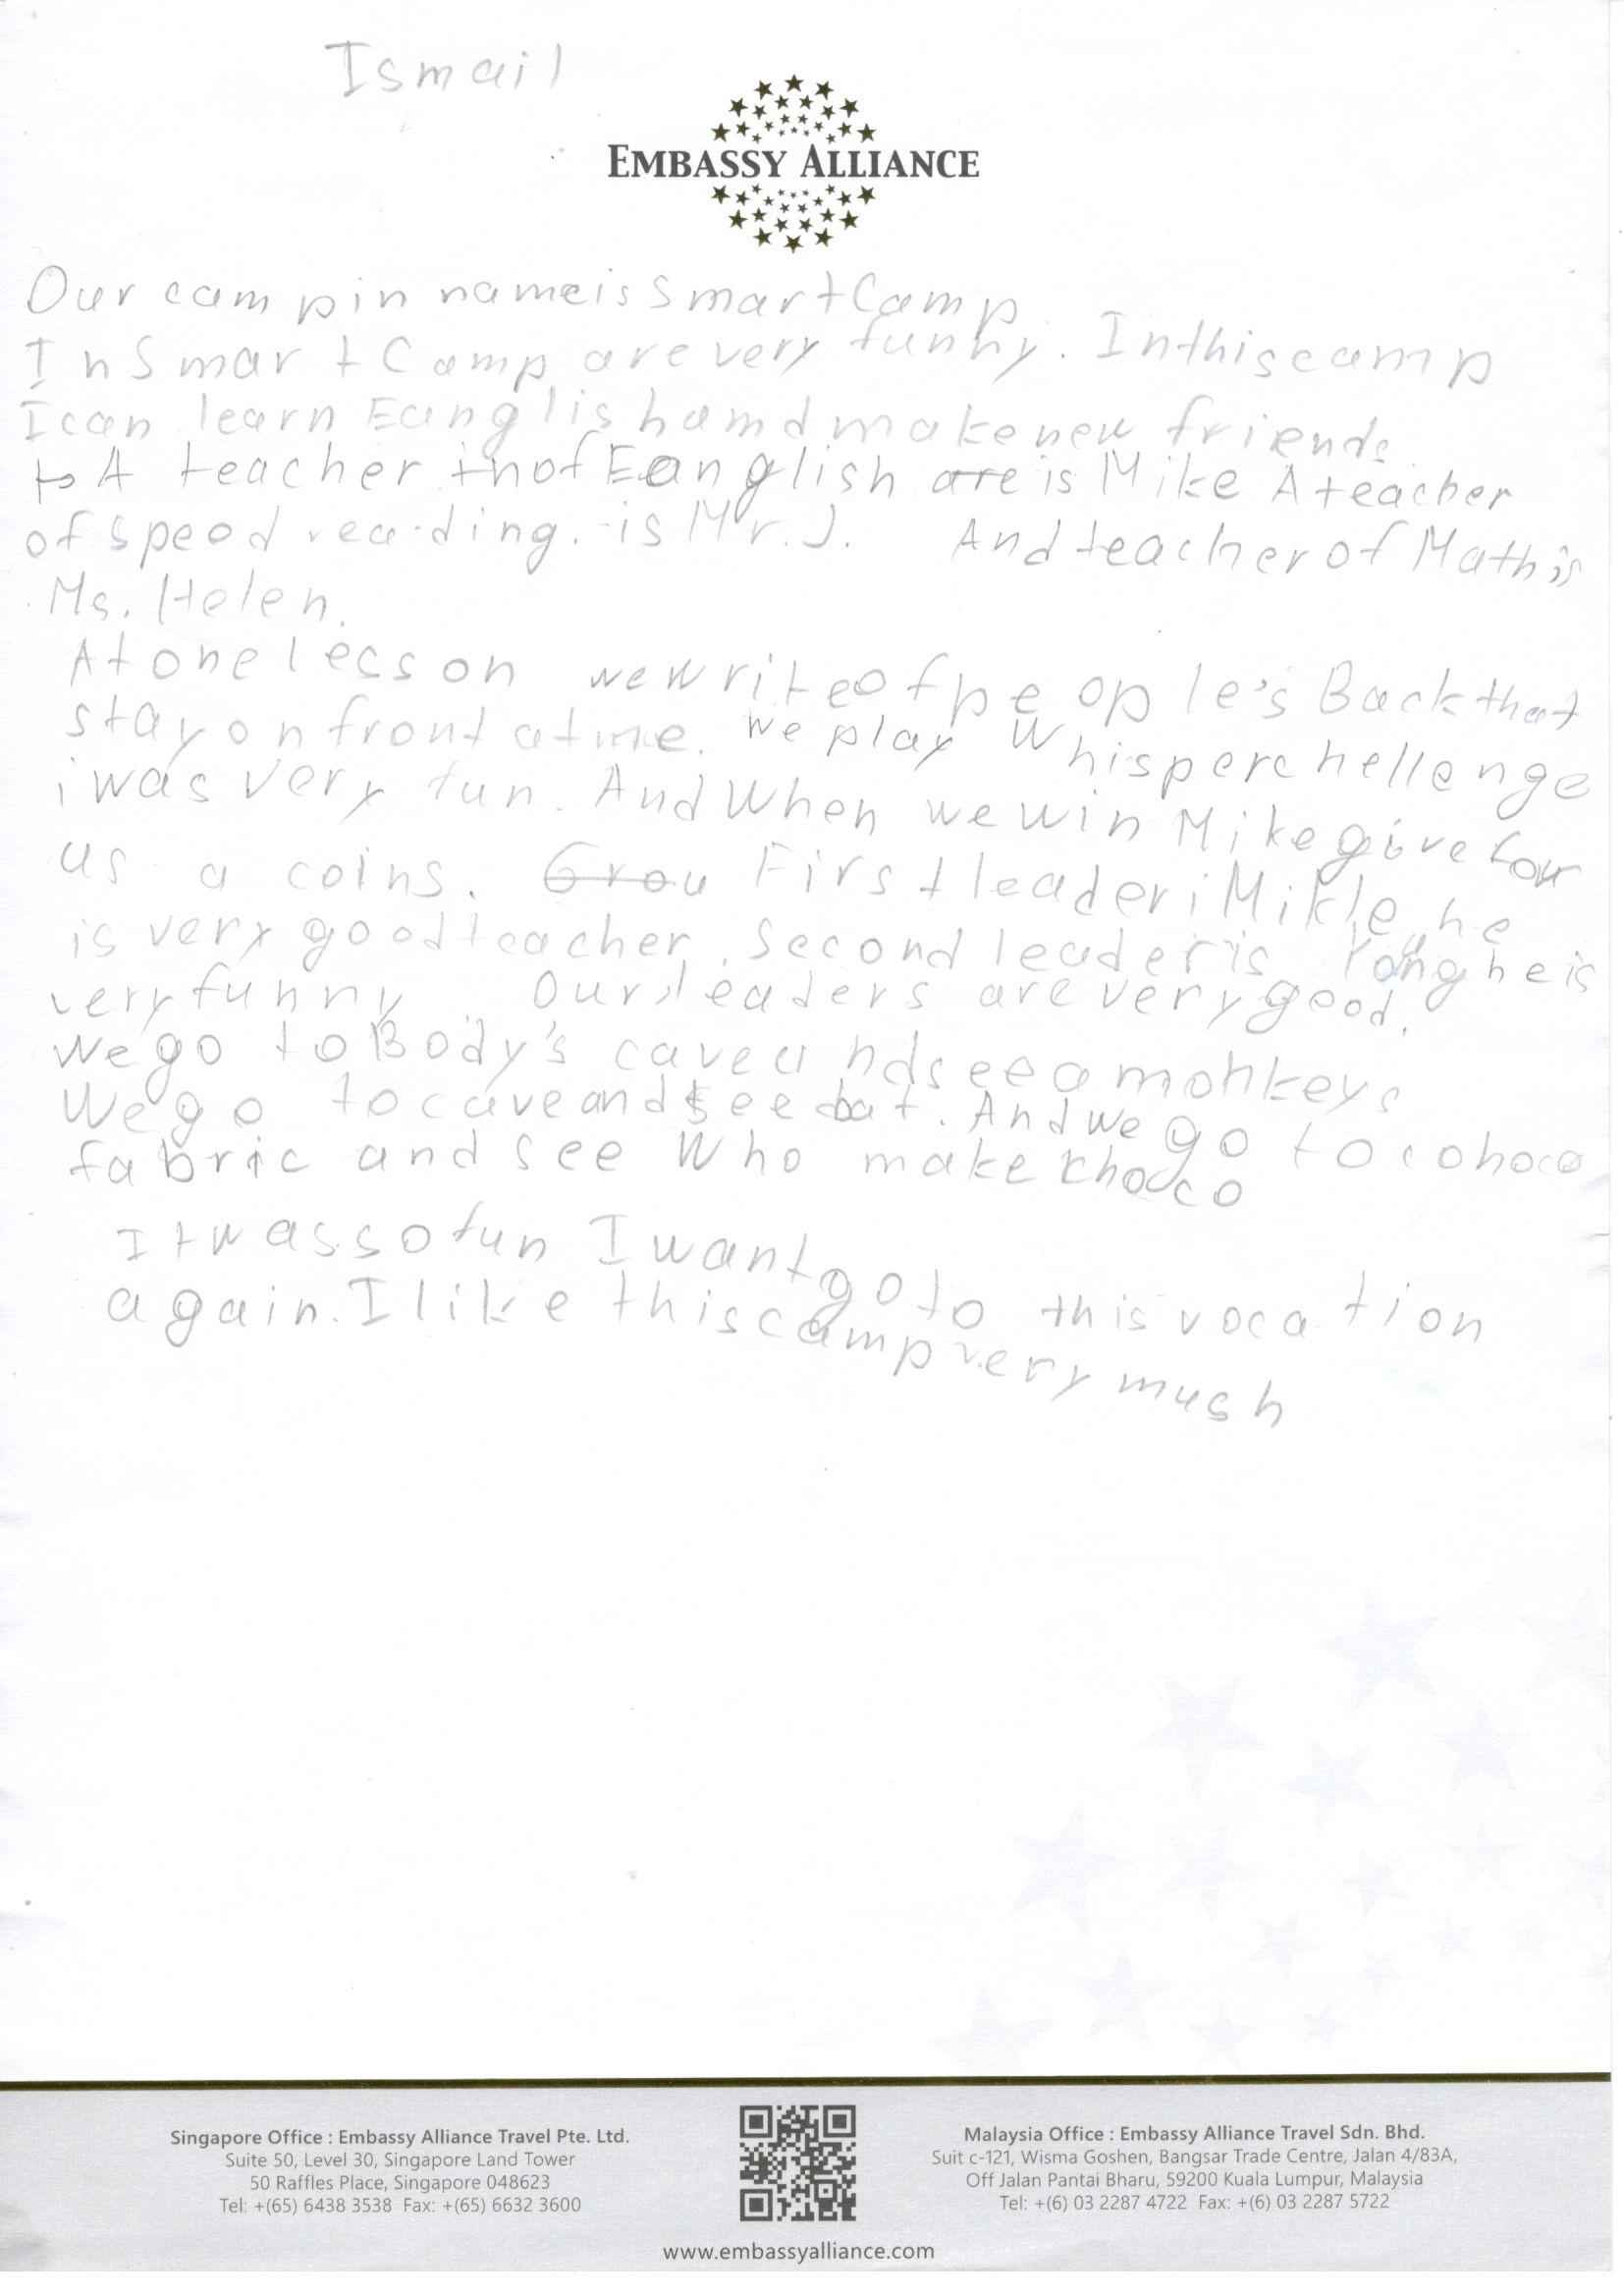 Ismail
EMBASSY ALLIANCE
Our campin name is Smart Camp
In Smart Camp are very funny. In this camp
I can learn Eanglish amd make new friends
A teacher of Eanglish is Mike A teacher
of speod reading. is Mr. J. And teacher of Math is
Ms. Helen.
At one lesson we write of people's Back that
stay on front at me. We play Whisper chellenge
i was very fun. And When we win Mike give
us a coins. First leader i Mikle, he
is very good teacher. Second leader is Yong he is
very funny. Our leaders are very good.
We go to Body's cave and see a monkeys
We go to cave and see bat. And we go to cohoco
fabric and see Who make
It was so fun I want go to this vocation
again. I like this camp very mush
Singapore Office : Embassy Alliance Travel Pte. Ltd.
Suite 50, Level 30, Singapore Land Tower
50 Raffles Place, Singapore 048623
Tel: +(65) 6438 3538 Fax: +(65) 6632 3600
Malaysia Office : Embassy Alliance Travel Sdn. Bhd.
Suit c-121, Wisma Goshen, Bangsar Trade Centre, Jalan 4/83A,
Off Jalan Pantai Bharu, 59200 Kuala Lumpur, Malaysia
Tel: +(6) 03 2287 4722 Fax: +(6) 03 2287 5722
www.embassyalliance.com